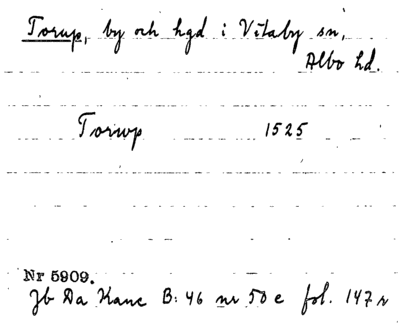 Torup, by och hgd i Vitaby sn,
Albo hd.
Torwp 1525
Nr 5909.
Jb Da Kanc B: 46 nr 50 e fol. 147 r